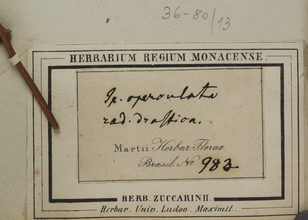 36-80/13
HERBARIUM REGIUM MONACENSE
Ip. operculata
rad. drastica.
Martii Herbar Florae
Brasil. No 983
HERB. ZUCCARINII.
Herbar. Univ. Ludov. Maximil.